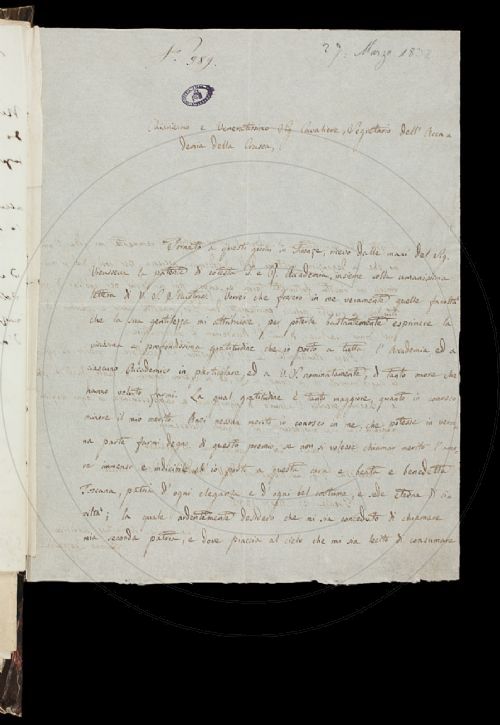 N.° 989.
27. Marzo 1832
Chiarissimo e Veneratissimo Sig. Cavaliere, Segretario dell' Acca-
demia della Crusca,
Tornato a questi giorni in Firenze, ricevo dalle mani del Sig.
Vieusseux la patente di cotesta I. e R. Accademia, insieme colla umanissima
lettera di V. S. Illustriss. Vorrei che fossero in me veramente quelle facoltà
che la sua gentilezza mi attribuisce, per poterle bastantemente esprimere la
sincera e profondissima gratitudine che io porto a tutta l' Accademia ed a
ciascuno Accademico in particolare ed a V. S. nominatamente, di tanto onore che
hanno voluto farmi. La qual gratitudine è tanto maggiore, quanto io conosco
minore il mio merito. Anzi nessun merito io conosco in me, che potesse in veru-
na parte farmi degno di questo premio, se non si volesse chiamar merito l' amo-
re immenso e indicibile ch' io porto a questa cara e beata e benedetta
Toscana, patria d' ogni eleganza e d' ogni bel costume, e sede eterna di ci-
viltà; la quale ardentemente desidero che mi sia conceduto di chiamare
mia seconda patria, e dove piaccia al cielo che mi sia lecito di consumare